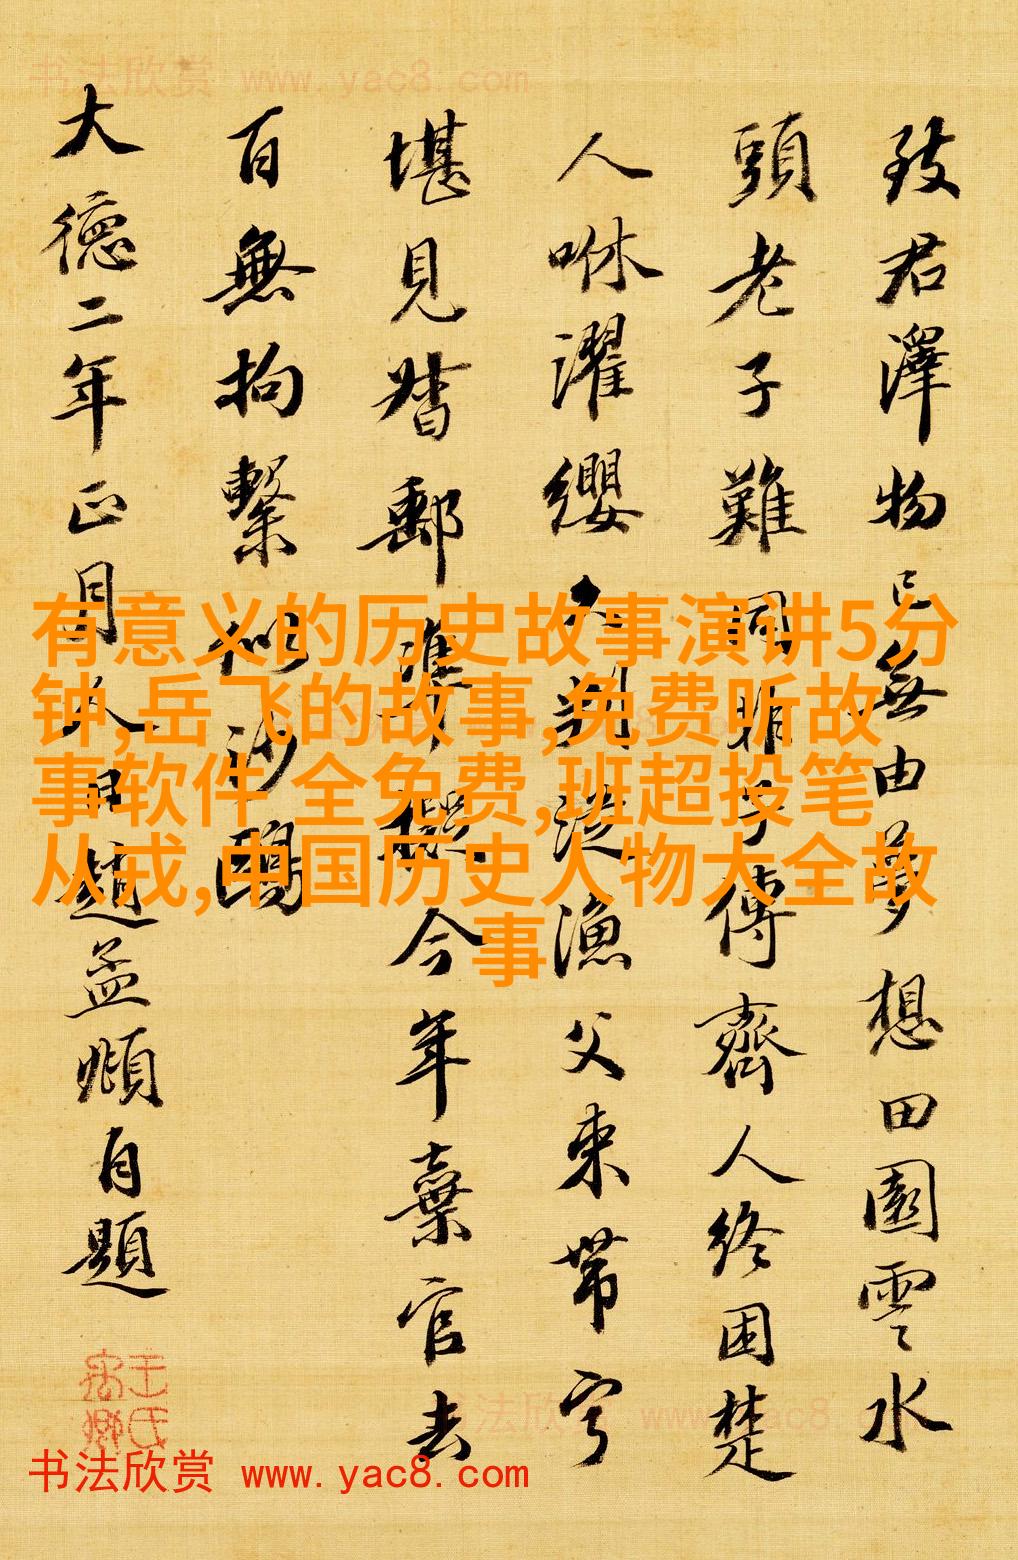 致君澤物已無由夢想田園雲水
頭老子難同非子傳齊人終困楚
人咻濯纓久判從漁父束帶寧
堪見督郵準擬今年棄官去
百無拘繫似沙鷗
大德二年正月人日趙孟頫自題
有意义的历史故事演讲5分
钟,岳飞的故事,免费听故
事软件 全免费,班超投笔
从戎,中国历史人物大全故
事
书法欣赏 www.yac8.com
书法欣赏 www.yac8.com